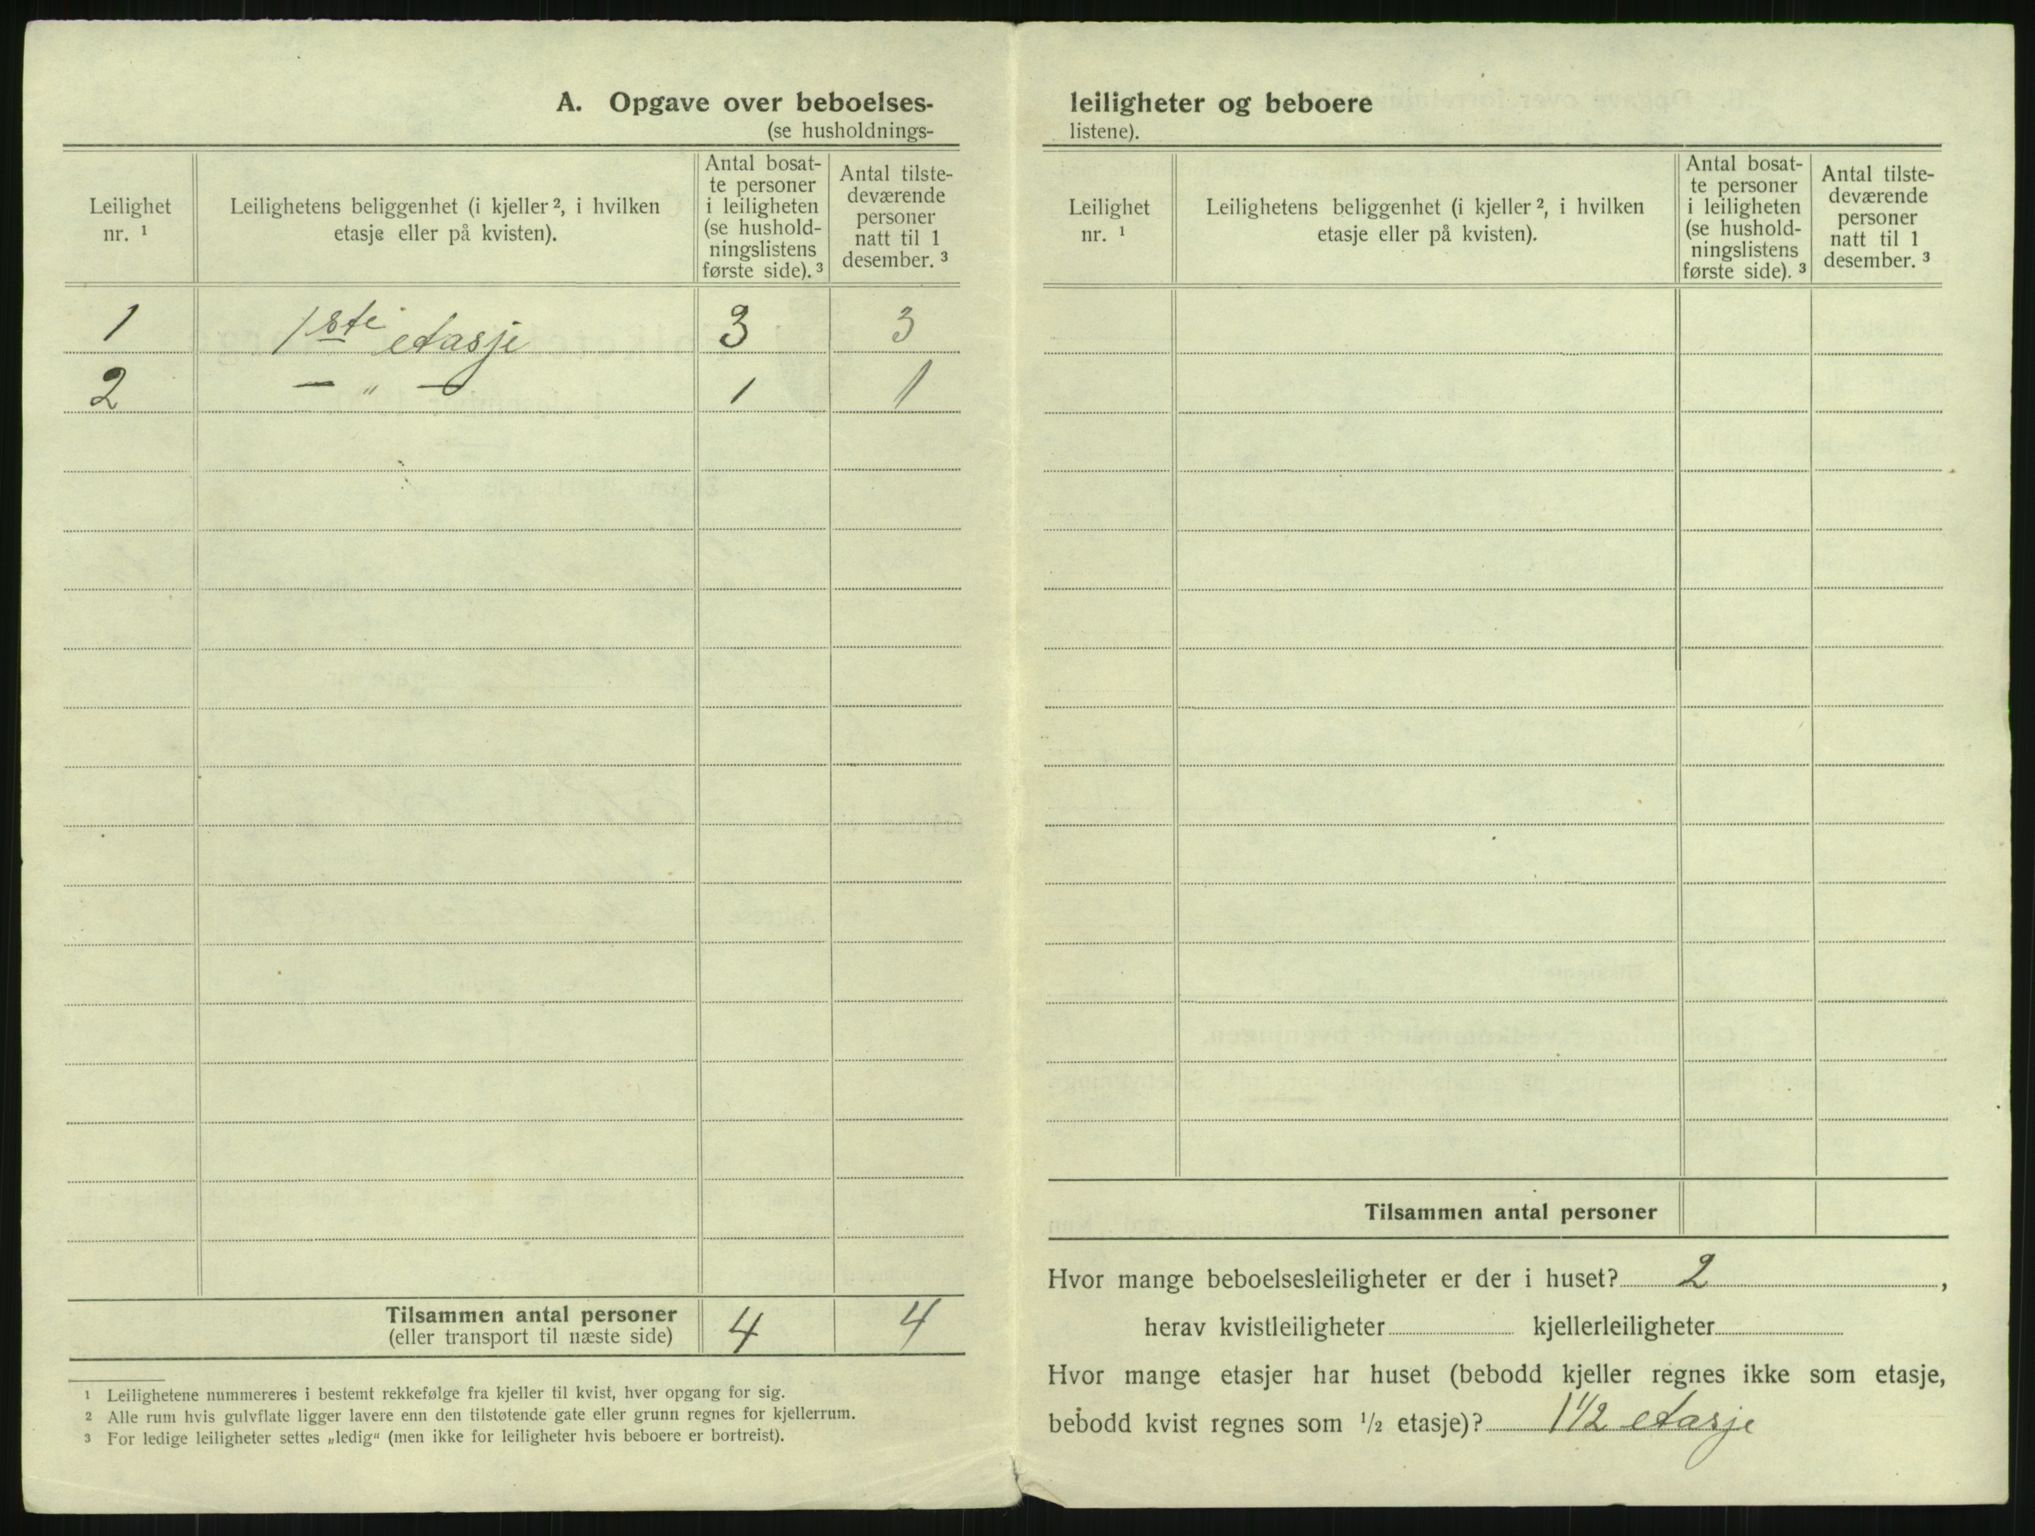 A. Opgave over beboelses-
(se husholdnings-
Leilighet
nr. ¹
Leilighetens beliggenhet (i kjeller ², i hvilken
etasje eller på kvisten).
Antal bosat-
te personer
i leiligheten
(se hushold-
ningslistens
første side). ³
Antal tilste-
deværende
personer
natt til 1
desember. ³
1 1ste etasje 3 3
2 — „ — 1 1
Tilsammen antal personer
(eller transport til næste side)
4 4
¹ Leilighetene nummereres i bestemt rekkefølge fra kjeller til kvist, hver opgang for sig.
² Alle rum hvis gulvflate ligger lavere enn den tilstøtende gate eller grunn regnes for kjellerrum.
³ For ledige leiligheter settes „ledig“ (men ikke for leiligheter hvis beboere er bortreist).
leiligheter og beboere
listene).
Leilighet
nr. ¹
Leilighetens beliggenhet (i kjeller ², i hvilken
etasje eller på kvisten).
Antal bosat-
te personer
i leiligheten
(se hushold-
ningslistens
første side). ³
Antal tilste-
deværende
personer
natt til 1
desember. ³
Tilsammen antal personer
Hvor mange beboelsesleiligheter er der i huset? 2 ,
herav kvistleiligheter kjellerleiligheter
Hvor mange etasjer har huset (bebodd kjeller regnes ikke som etasje,
bebodd kvist regnes som ¹/₂ etasje)? 1 1/2 etasje